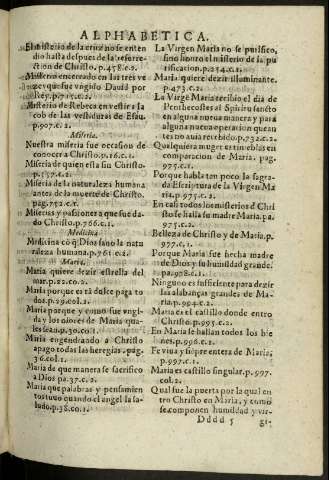 ALPHABETICA.
El misterio de la cruz no se enten
dio hasta despues de la resorre-
ction de Christo. p.458.c.2.
Misterio encerrado en las tres ve
zes que fue vngido Dauid por
Rey. p.715.c.2.
Misterio de Rebeca en vestir a Ia
cob de las vestiduras de Esau.
p.907.c.2.
Miseria.
Nuestra miseria fue occasion de
conocer a Christo. p.16.c.1.
Miseria de quien esta sin Christo.
p.137.c.2.
Miseria de la naturaleza humana
antes de la muerte de Christo.
pag.752.c.1.
Miserias y passiones a que fue da
do Christo. p.766.c.1.
Medicina cõ q̃ Dios sano la natu
raleza humana. p.761.c.2.
Maria.
Maria quiere dezir estrella del
mar. p.22.co.2.
Maria porque esta dolce paga to
dos. p.29.col.2.
Maria porque y como fue vngi-
da y los olores de Maria qua-
les sean. p.30.co.1.
Maria engendrando a Christo
apago todas las heregias. pag.
36.col.1.
Maria de que manera se sacrifico
a Dios pa.37.c.2.
Maria que palabras y pensamien
tos tuuo quando el angel la sa-
ludo. p.38.co.1.
La Virgen Maria no se purifico,
sino honro el misterio de la pu
rificacion. p.254.c.1.
Maria quiere dezir illuminante.
p.473.c.2.
La Virgẽ Maria recibio el dia de
Penthecostes al Spiritu sancto
en alguna nueua manera y para
alguna nueua operacion que an
tes no auia recebido. p.732.c.2.
Qualquiera muger es niebla en
comparacion de Maria. pag.
975.c.1.
Porque habla tan poco la sagra-
da Escriptura de la Virgen Ma
ria. p.975.c.2.
En casi todos los misterios de Christ
to se halla su madre Maria. pa.
975.c.2.
Belleza de Christo y de Maria. p.
977.c.1.
Porque Maria fue hecha madre
de Dios y su humildad grande.
pa.978.c.1.
Ninguno es sufficiente para dezir
las alabanças grandes de Ma-
ria. p.994.c.2.
Maria es el castillo donde entro
Christo. p.995.c.2.
En Maria se hallan todos los bie
nes. p.996.c.2.
Fe viua y siẽpre entera de Maria.
p.997.c.1.
Maria es castillo singular. p.997.
col.2.
Qual fue la puerta por la qual en
tro Christo en Maria, y como
se componen humildad y vir-
Dddd 5